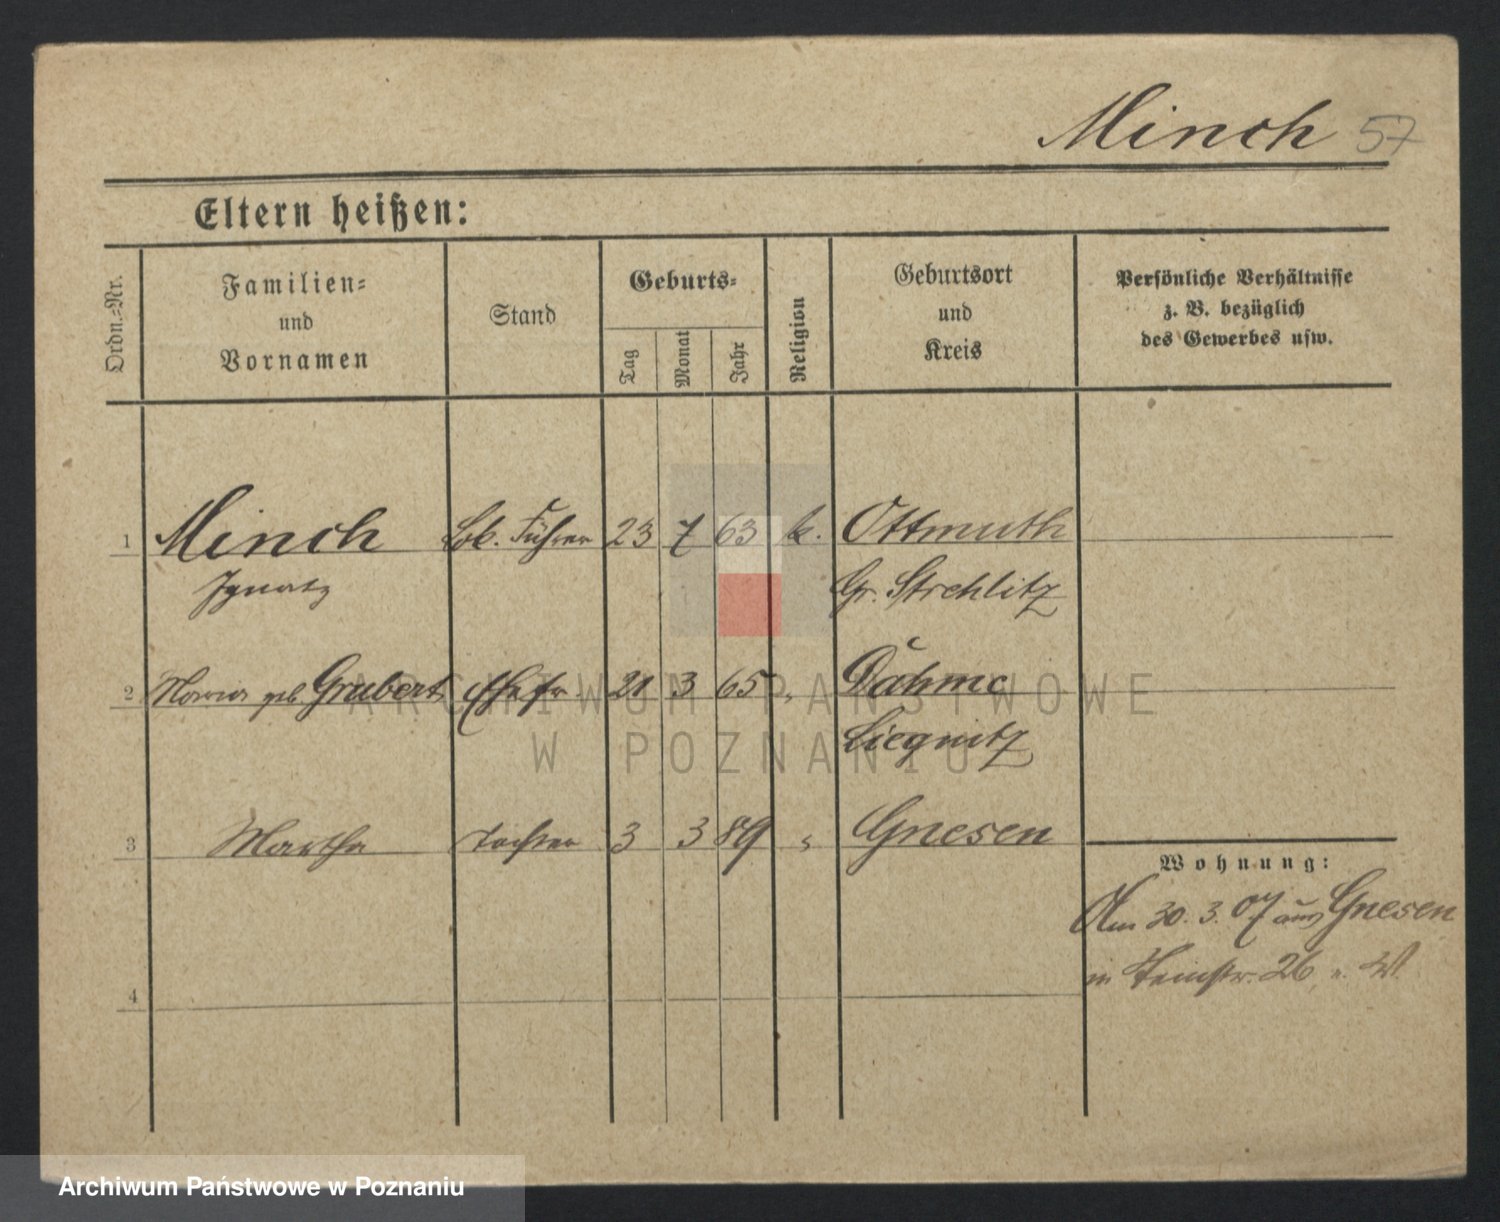 Minch 57
Eltern heißen:
Ordn.-Nr.
Familien-
und
Vornamen
Stand
Geburts-
Tag
Monat
Jahr
Religion
Geburtsort
und
Kreis
Persönliche Verhältnisse
z. B. bezüglich
des Gewerbes usw.
1 Minch Lok. Führer 23 7 63 k. Ottmuth
Ignatz Gr. Strehlitz
2 Maria geb Grubert Ehefr. 21 3 65 " Dahme
Liegnitz
3 Martha Tochter 3 3 89 " Gnesen
Wohnung:
Am 30. 3. 07 aus Gnesen
26
4
ARCHIWUM PAŃSTWOWE
W POZNANIU
Archiwum Państwowe w Poznaniu